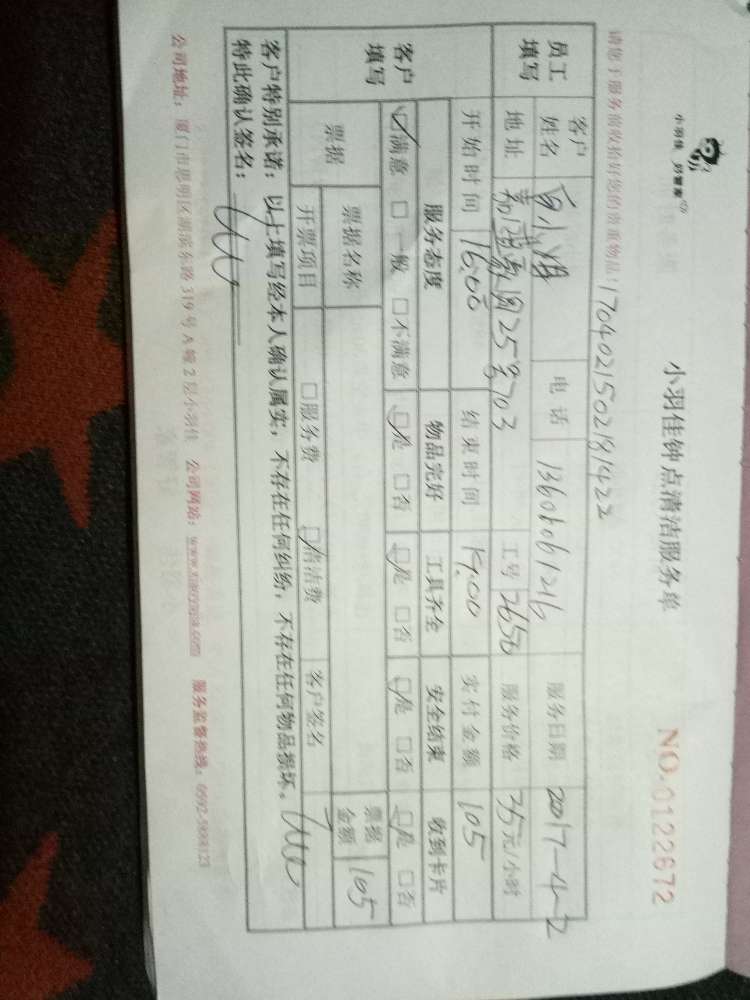 小羽佳 好管家
小羽佳钟点清洁服务单
NO.0122672
请您于服务前收拾好您的贵重物品!
1704021502181422
员工填写
客户姓名 小 电话 13606061216 服务日期 2017-4-2
地址 嘉 25号703 工号 2656 服务价格 35元/小时
开始时间 16:00 结束时间 19:00 实付金额 105
客户填写
服务态度 物品完好 工具齐全 安全结束 收到卡片
☑满意 □一般 □不满意 ☑是 □否 ☑是 □否 ☑是 □否 ☑是 □否
票据 票据名称 票据金额 105
开票项目 □服务费 ☑清洁费 客户签名
客户特别承诺:以上填写经本人确认属实,不存在任何纠纷,不存在任何物品损坏。
特此确认签名:
公司地址:厦门市思明区湖滨东路319号A幢2层小羽佳 公司网站:www.xiaoyujia.com 服务监督热线:0592-5888123